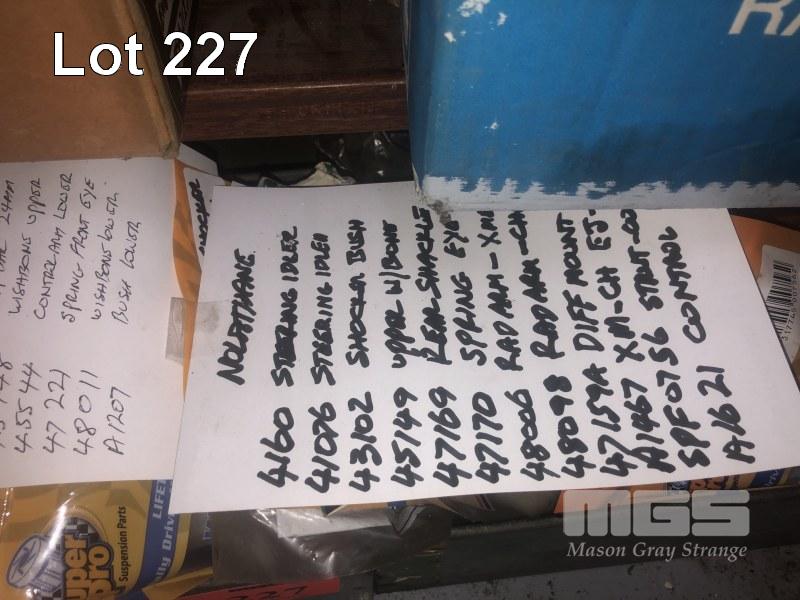 Lot 227
RA
24MM
WISHBONE UPPER
45544
CONTROL ARM LOWER
4722
SPRING FRONT EYE
48011
WISHBONE LOWER
A1207
BUSH LOWER
NOLATHANE
4160 STEERING IDLER
41076 STEERING IDLER
43102 SHOCKER BUSH
45149 UPPER W/BONE
47169 REAR SHACKLE
47170 SPRING EYE
48006 RAD ARM-XM
48098 RAD ARM-CH
47159A DIFF MOUNT
A1467 XM-CH
SPF0756 STRUT
A1621 CONTROL
Super Pro
Suspension Parts
LIFE
MGS
Mason Gray Strange